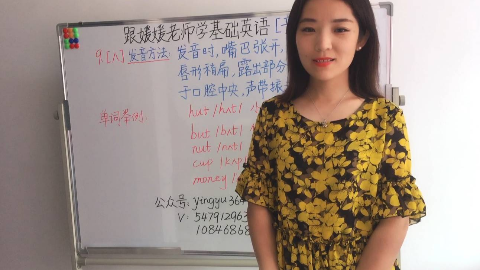 跟媛媛老师学基础英语
9. [ʌ] 发音方法: 发音时, 嘴巴张开,
唇形稍扁, 露出部分
于口腔中央, 声带振
单词举例: hut /hʌt/
but /bʌt/
nut /nʌt/
cup /kʌp/
money
公众号: yingyu364
V: 547912963
1084686